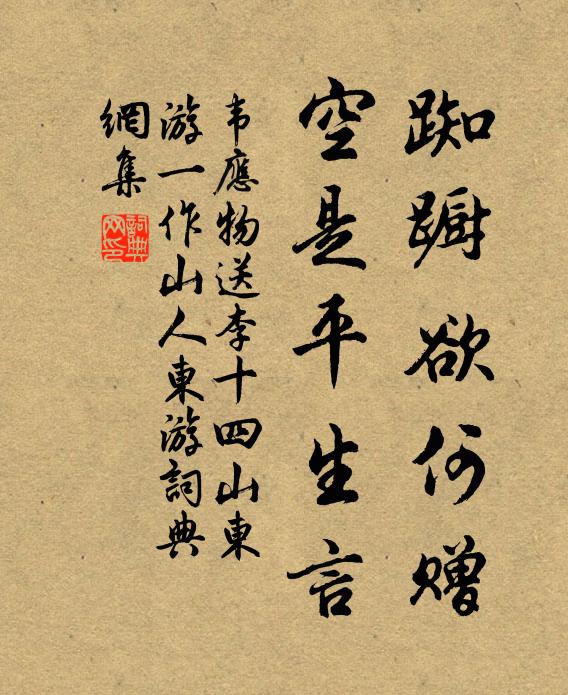 踟蹰欲何赠
空是平生言
韦應物送李十四山東
游一作山人東游詞典
網集
詞典網印